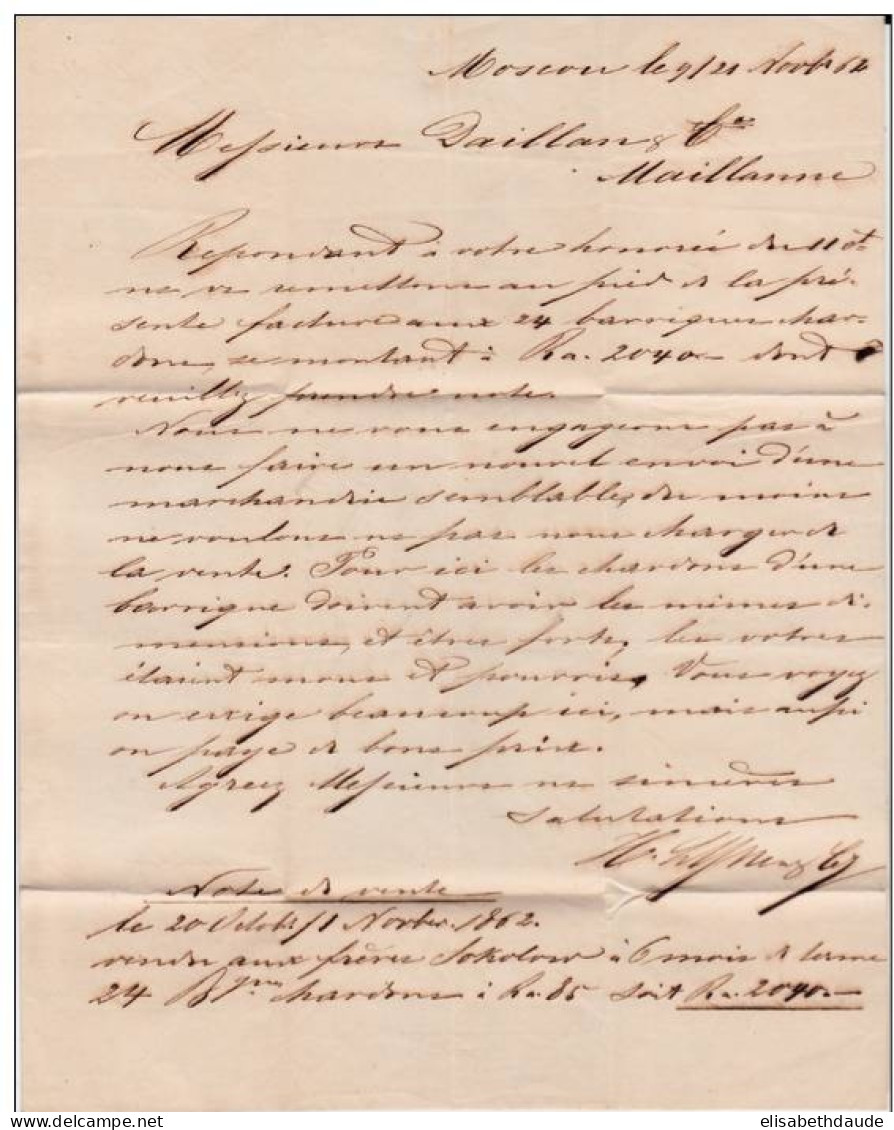 Moscou le 9/21 Novbr 62
Messieurs Daillan & Cie
Maillanne
Repondant à votre honorée du 11 ct
ns vs remettons au pied de la pré-
sente facture aux 24 barriques char-
dons, se montant à Ro. 2040.- dont
veuillez prendre note.
Nous ne vous engageons pas à
nous faire un nouvel envoi d'une
marchandise semblable, du moins
ne voulons ns pas nous charger de
la vente. Pour ici les chardons d'une
barrique doivent avoir les mêmes di-
mensions, et êtres forts, les votres
étaient mous et pourris. Vous voyez
on exige beaucoup ici, mais aussi
on paye de bons prix.
Agreez Messieurs ns sincères
salutations
Note de vente
le 20 Octobr/1 Novbr. 1862.
vendu aux frères Sokolow à 6 mois de terme
24 Bques chardons à Ro. 85 soit Ro. 2040.-
elisabethdaude